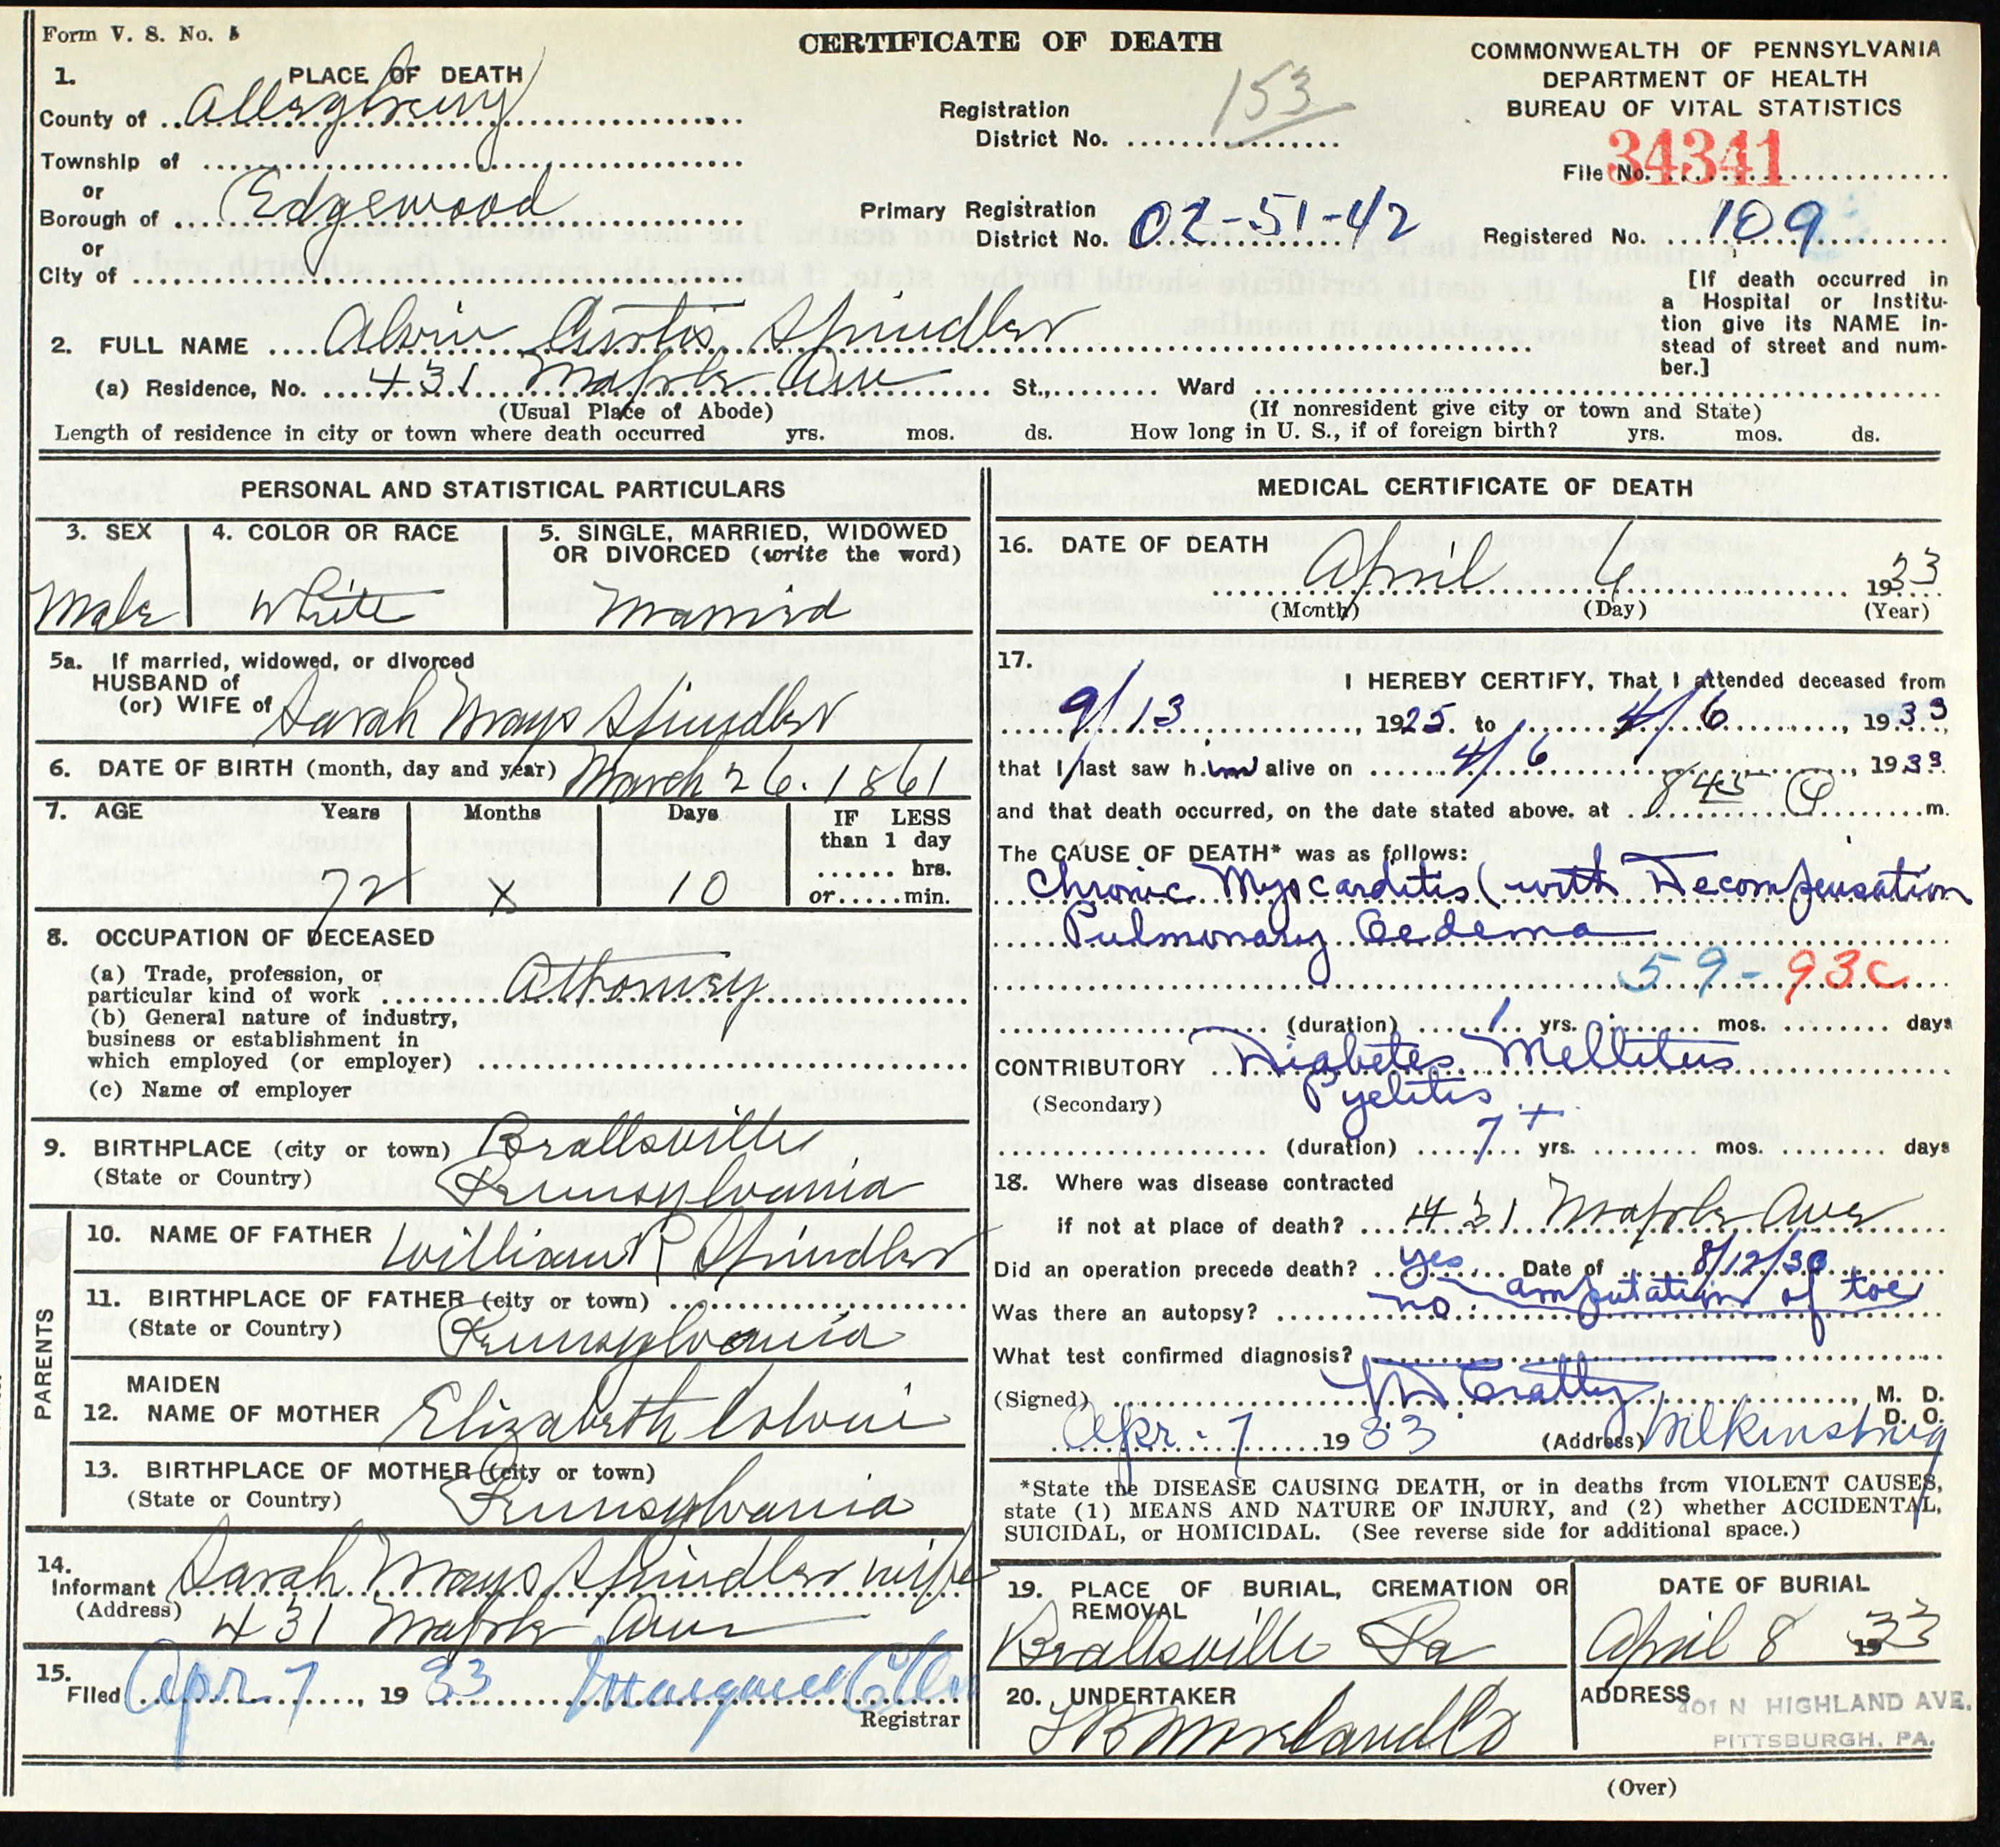 Form V. S. No. 5
CERTIFICATE OF DEATH
COMMONWEALTH OF PENNSYLVANIA
DEPARTMENT OF HEALTH
BUREAU OF VITAL STATISTICS
1. PLACE OF DEATH
County of Allegheny
Township of
or
Borough of Edgewood
or
City of
Registration District No. 153
Primary Registration District No. 02-51-42
File No. 34341
Registered No. 109
[If death occurred in a Hospital or Institution give its NAME instead of street and number.]
2. FULL NAME Alvin Curtis Spindler
(a) Residence, No. 431 Maple Ave St., Ward
(Usual Place of Abode) (If nonresident give city or town and State)
Length of residence in city or town where death occurred yrs. mos. ds. How long in U. S., if of foreign birth? yrs. mos. ds.
PERSONAL AND STATISTICAL PARTICULARS
3. SEX Male
4. COLOR OR RACE White
5. SINGLE, MARRIED, WIDOWED OR DIVORCED (write the word) Married
5a. If married, widowed, or divorced
HUSBAND of
(or) WIFE of Sarah Mays Spindler
6. DATE OF BIRTH (month, day and year) March 26. 1861
7. AGE Years 72 Months x Days 10 IF LESS than 1 day ...... hrs. or ..... min.
8. OCCUPATION OF DECEASED
(a) Trade, profession, or particular kind of work Attorney
(b) General nature of industry, business or establishment in which employed (or employer)
(c) Name of employer
9. BIRTHPLACE (city or town) Brallsville
(State or Country) Pennsylvania
PARENTS
10. NAME OF FATHER William P Spindler
11. BIRTHPLACE OF FATHER (city or town)
(State or Country) Pennsylvania
12. MAIDEN NAME OF MOTHER Elizabeth Colvin
13. BIRTHPLACE OF MOTHER (city or town)
(State or Country) Pennsylvania
14. Informant Sarah Mays Spindler wife
(Address) 431 Maple Ave
15. Filed Apr 7, 1933 Margaret
Registrar
MEDICAL CERTIFICATE OF DEATH
16. DATE OF DEATH April 6 1933
(Month) (Day) (Year)
17. I HEREBY CERTIFY, That I attended deceased from
9/13, 1925 to 4/6, 1933,
that I last saw h im alive on 4/6, 1933
and that death occurred, on the date stated above, at 8 45 P m.
The CAUSE OF DEATH* was as follows:
Chronic Myocarditis (with Decompensation
Pulmonary Oedema
59-93c
(duration) 1 yrs. mos. days
CONTRIBUTORY Diabetes Mellitus
(Secondary) Pyelitis
(duration) 7+ yrs. mos. days
18. Where was disease contracted
if not at place of death? 431 Maple Ave
Did an operation precede death? yes Date of 8/12/30
amputation of toe
Was there an autopsy? no
What test confirmed diagnosis?
(Signed) Cratty M. D.
D. O.
Apr. 7 1933 (Address) Wilkinsburg
*State the DISEASE CAUSING DEATH, or in deaths from VIOLENT CAUSES,
state (1) MEANS AND NATURE OF INJURY, and (2) whether ACCIDENTAL,
SUICIDAL, or HOMICIDAL. (See reverse side for additional space.)
19. PLACE OF BURIAL, CREMATION OR REMOVAL
Brallsville Pa
DATE OF BURIAL
April 8 1933
20. UNDERTAKER
Moreland Co
ADDRESS 401 N HIGHLAND AVE.
PITTSBURGH, PA.
(Over)